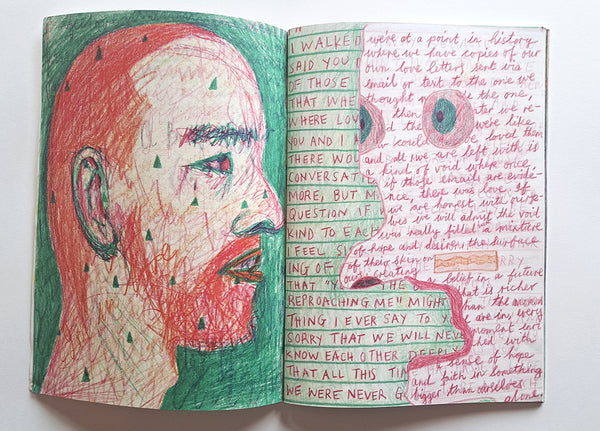 I WALKED
SAID YOU
OF THOSE
THAT WHE
WHERE LOV
YOU AND I
THERE WOU
CONVERSATI
MORE, BUT M
QUESTION IF
KIND TO EACH
I FEEL SI
ING OF
THAT "Y THE
REPROACHING ME" MIGHT
THING I EVER SAY TO Y
SORRY THAT WE WILL NEV
KNOW EACH OTHER DEEPLY
THAT ALL THIS TIM
WE WERE NEVER G
we're at a point in history
where we have copies of our
own love letters sent via
email or text to the one we
thought the one.
then we re-
the were like
we loved them
and all we are left with is
a kind of void where once,
if those emails are evide-
nce, there was love. If
we are honest with ourse-
lves we will admit the void
was really filled a mixture
of hope and desire the surface
of their skin on RRY
our creating belief in a future
that is richer
than the moment
are in, every
moment enri
ched with
a sense of hope
and faith in something
bigger than ourselves
alone.